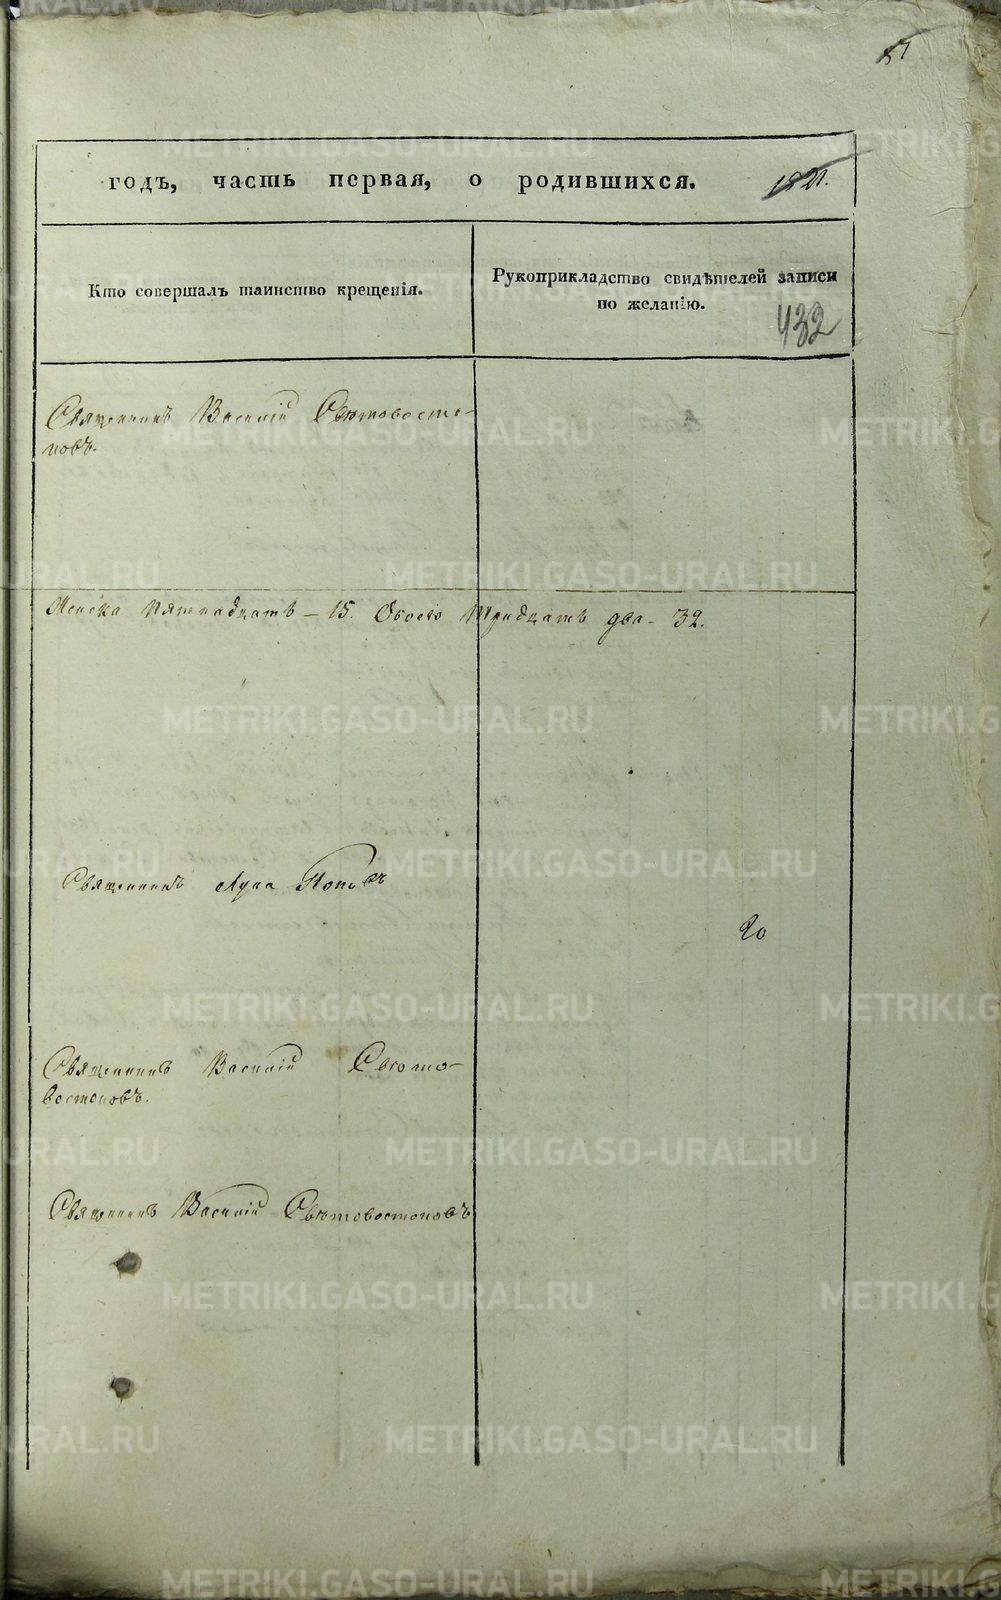 годъ, часть первая, о родившихся.
Кто совершалъ таинство крещенія.
Рукоприкладство свидѣтелей записи
по желанію.
432
Священникъ Василій Свѣтовосто-
ковъ.
Женска пятнадцать - 15. Обоего тридцать два - 32.
Священникъ Лука Поповъ
20
Священникъ Василій Свѣто-
востоковъ.
Священникъ Василій Свѣтовостоковъ
METRIKI.GASO-URAL.RU